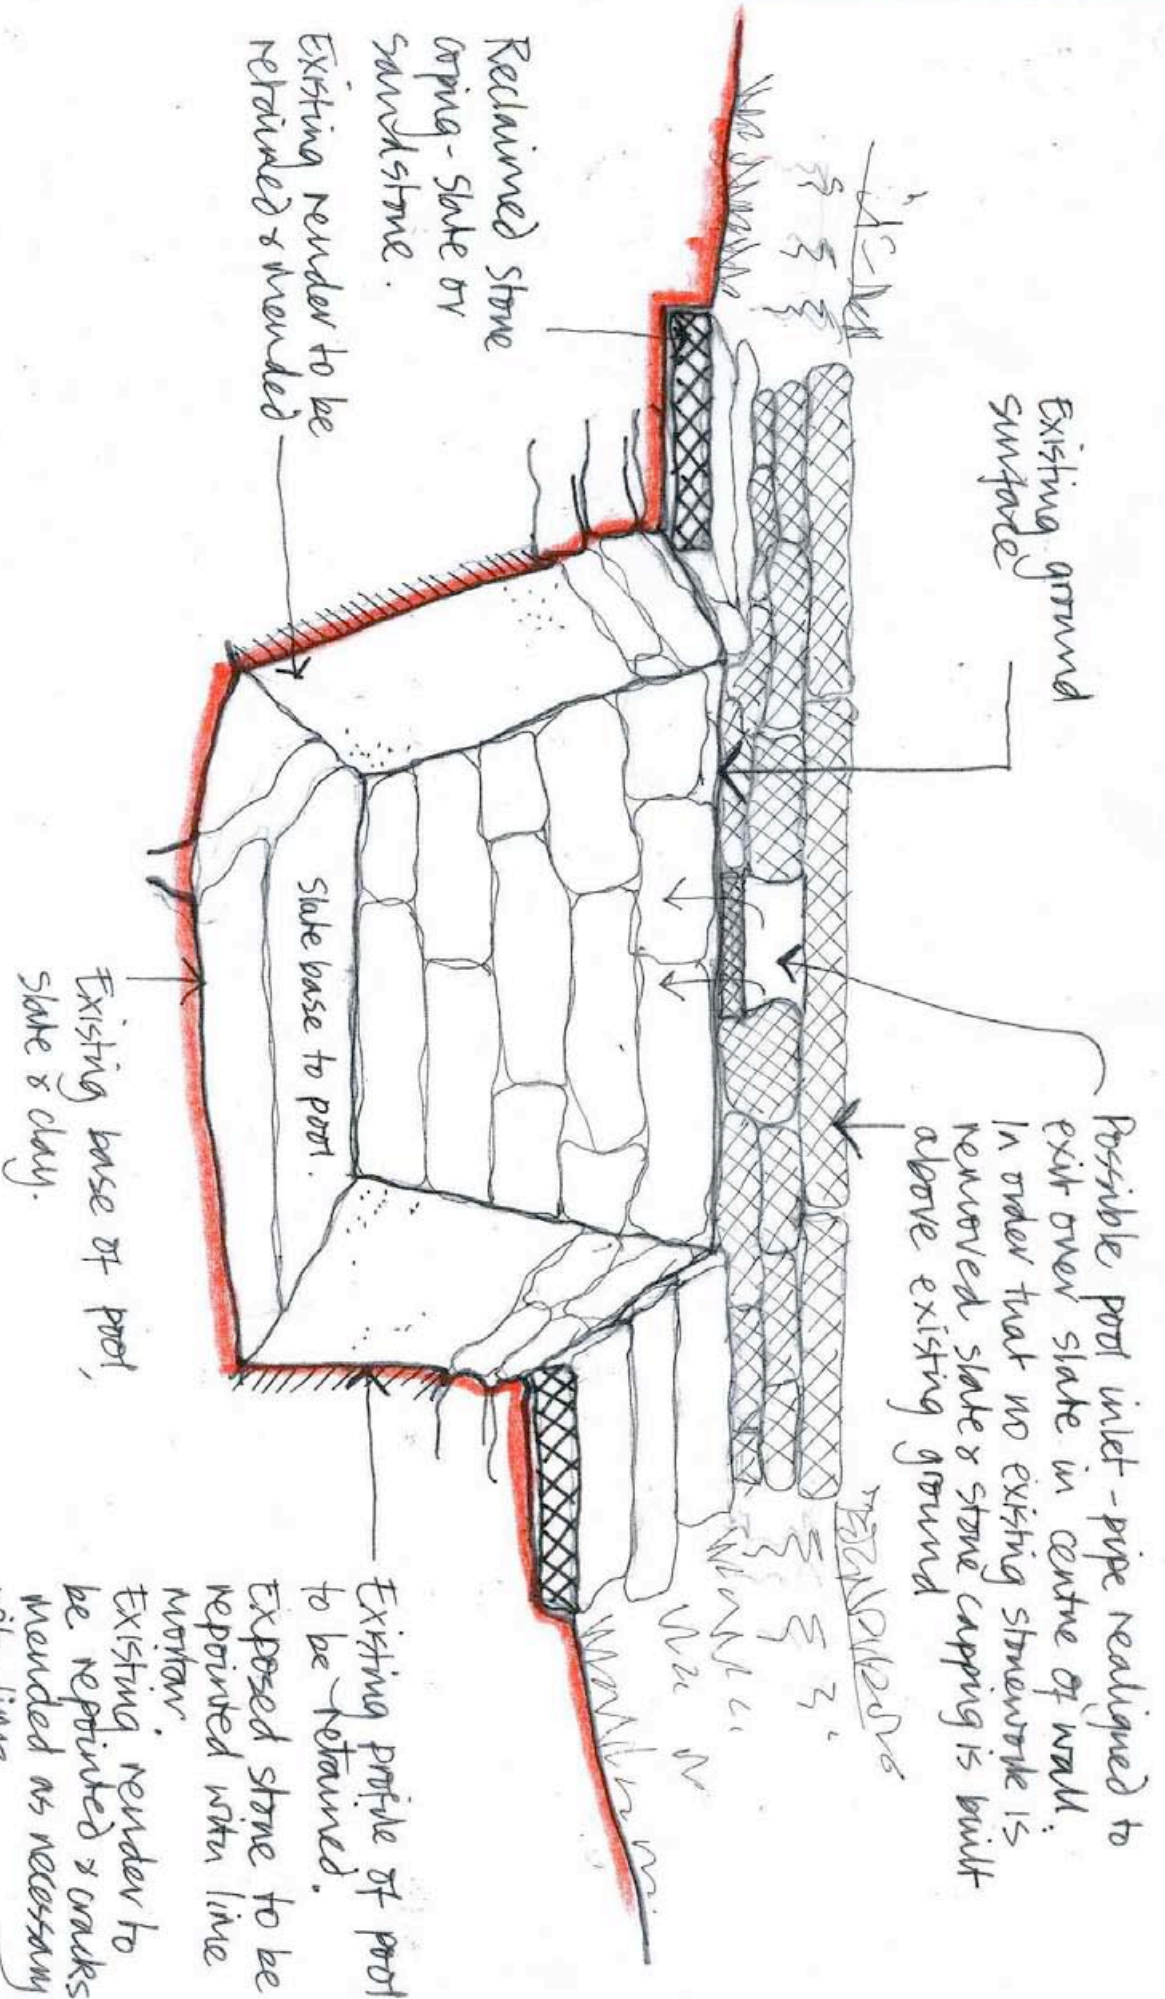 Existing ground
surface
Possible pool inlet - pipe realigned to
exit over slate in centre of wall.
In order that no existing stonework is
removed slate & stone capping is built
above existing ground
Reclaimed stone
coping - slate or
sandstone.
Existing render to be
retained & mended
Slate base to pool.
Existing base of pool,
slate & clay.
Existing profile of pool
to be retained.
Exposed stone to be
repointed with lime
mortar.
Existing render to
be repointed & cracks
mended as necessary